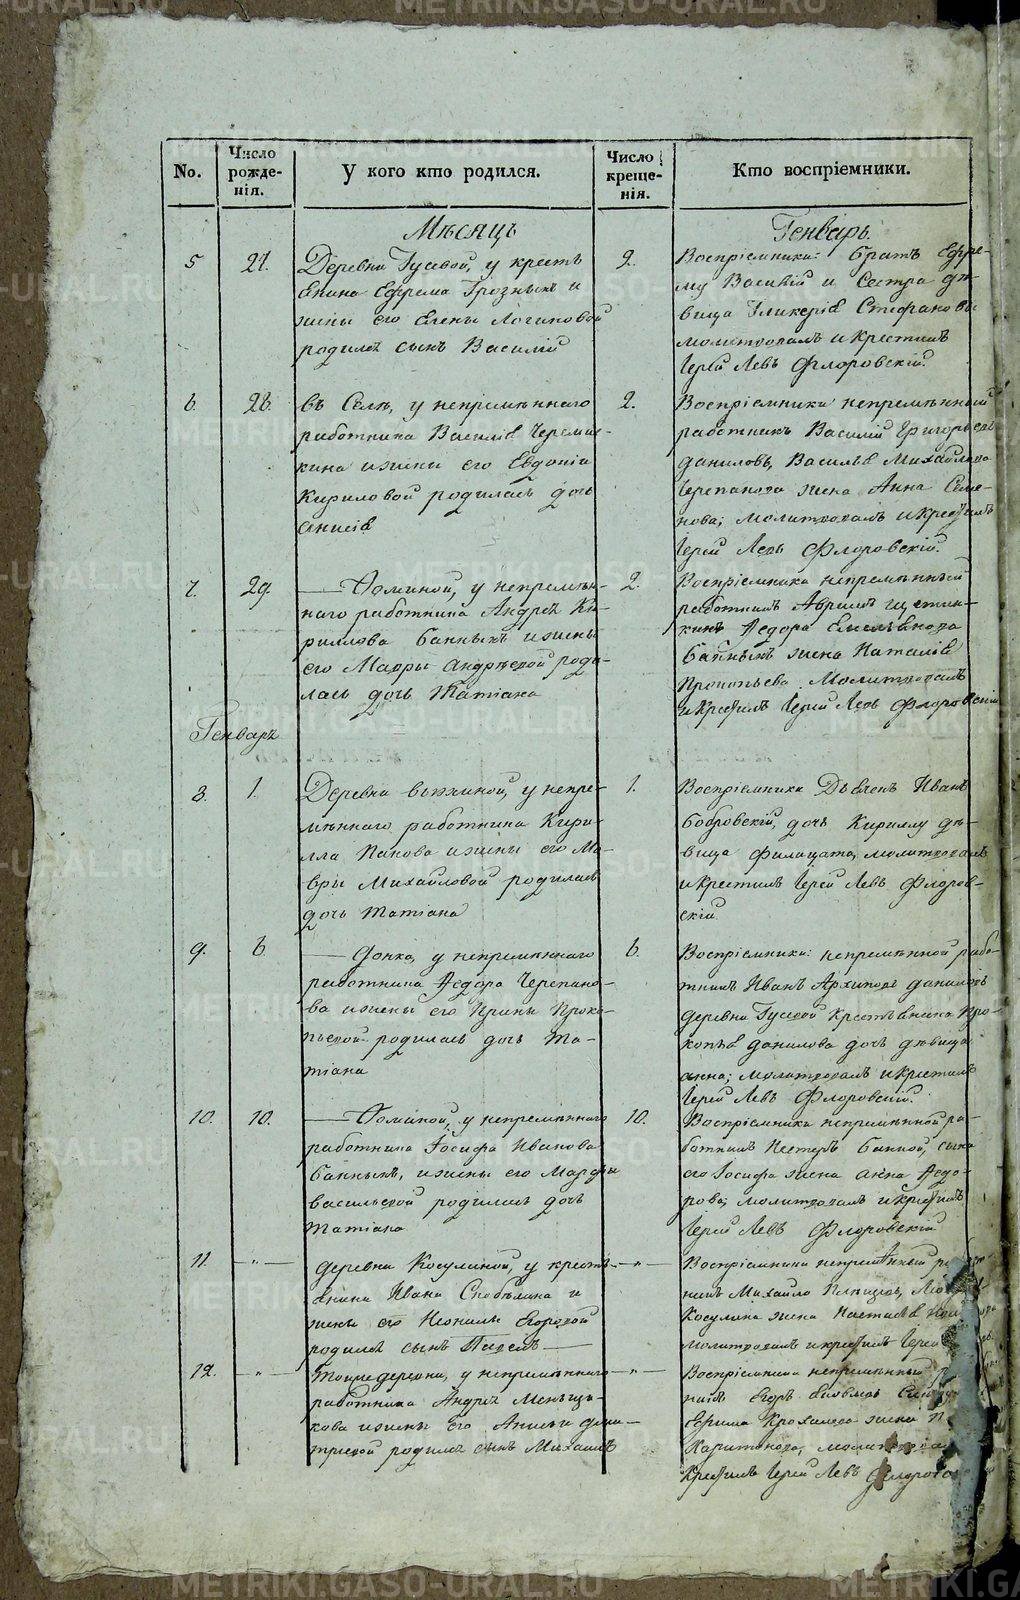 No.
Число рожденія.
У кого кто родился.
Число крещенія.
Кто воспріемники.
Мѣсяцъ
Генварь.
5
21.
Деревни Гусевой, у кресть
янина Ефрема Грозныхъ и
жены его Елены Логиновой
родился сынъ Василій
2.
Воспріемники: братъ Ефре-
му Василій и Сестра дѣ-
вица Гликерія Стефановы
молитвовалъ и крестилъ
Іерей Левъ Флоровскій.
6.
26.
въ Селѣ, у непремѣннаго
работника Василія Черема-
кина и жены его Евдокіи
Кириловой родилась дочь
Анисія
2.
Воспріемники непремѣнный
работникъ Василій Григорьевъ
Даниловъ, Василья Михайлова
Черепанова жена Анна Семе-
нова; молитвовалъ и крестилъ
Іерей Левъ Флоровскій.
7.
29.
— Фоминой, у непремѣн-
наго работника Андрея Ки-
риллова Банныхъ и жены
его Мавры Андреевой роди-
лась дочь Татіана
2.
Воспріемники непремѣнный
работникъ Аврамъ Щетин-
кинъ Федора Емельянова
Банныхъ жена Наталія
Прокопьева. Молитвовалъ
и Крестилъ Іерей Левъ Флоровскій
Генварь
8.
1.
Деревни вяткиной, у непре-
мѣннаго работника Кири-
лла Панова и жены его Ма-
вры Михайловой родилась
дочь Татіана
1.
Воспріемники Дьяконъ Иванъ
Бобровскій, дочь Кириллу дѣ-
вица Филицата, молитвовалъ
и крестилъ Іерей Левъ Флоров-
скій
9.
6.
— у непремѣннаго
работника Федора Черепано-
ва и жены его Ирины Проко-
пьевой родилась дочь Та-
тіана
6.
Воспріемники: непремѣнной рабо-
тникъ Иванъ Архиповъ Даниловъ
деревни Гусевой Крестьянина Про-
копья Данилова дочь дѣвица
Анна; молитвовалъ и крестилъ
Іерей Левъ Флоровскій.
10.
10.
— Фоминой, у непремѣннаго
работника Іосифа Иванова
Банныхъ, и жены его Марфы
Васильевой родилась дочь
Татіана
10.
Воспріемники непремѣнной ра-
ботникъ Несторъ Банной, сына
его Іосифа жена Анна Федо-
рова, молитвовалъ и крестилъ
Іерей Левъ Флоровскій
11.
— " —
деревни Косулиной, у кресть-
янина Ивана Скобѣлина и
жены его Неонилы Егоровой
родился сынъ Павелъ —
— " —
Воспріемники непремѣнный
Михайло
Косулина жена Настасья
молитвовалъ и крестилъ Іерей
12.
— " —
Тойже деревни, у непремѣннаго
работника Андрея Меньщи-
кова и жены его Анисьи Дми-
тревой родился сынъ Михаилъ
— " —
Воспріемники непремѣнный
Егоръ
Ефима Крохалева жена
Харитонова,
Крестилъ Іерей Левъ